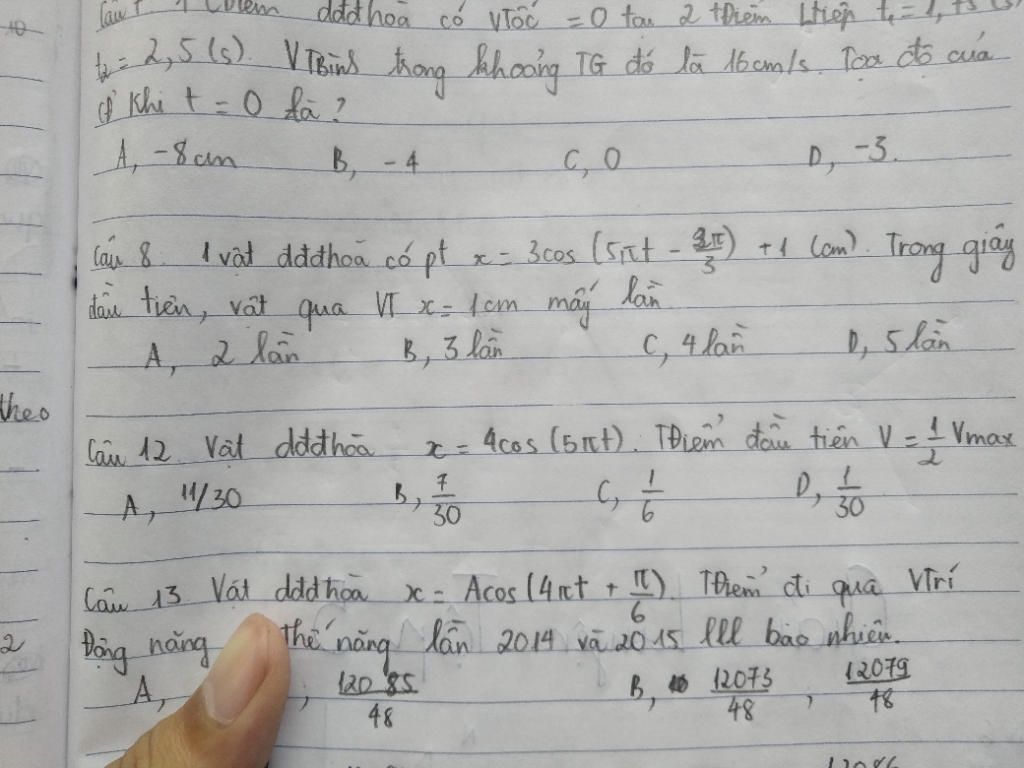 Câu 7 1 điểm dđđhoà có vTốc = 0 tại 2 tđiểm Ltiếp t₁ = 1,75 (s)
t₂ = 2,5 (s). VTBình trong khoảng TG đó là 16cm/s. Toạ độ của
cđ khi t = 0 là?
A, -8cm B, -4 C, 0 D, -3.
Câu 8. 1 vật dđđhoà có pt x = 3cos (5πt - 2π/3) + 1 (cm). Trong giây
đầu tiên, vật qua VT x = 1cm mấy lần
A, 2 lần B, 3 lần C, 4 lần D, 5 lần
theo
Câu 12. Vật dđđhoà x = 4cos (5πt). TĐiểm đầu tiên V = 1/2 Vmax
A, 11/30 B, 7/30 C, 1/6 D, 1/30
Câu 13. Vật dđđhoà x = Acos (4πt + π/6). TĐiểm đi qua VTrí
2
Động năng thế năng lần 2014 và 2015 lll bao nhiên.
A, , 12085/48 B, 12073/48 , 12079/48
12086